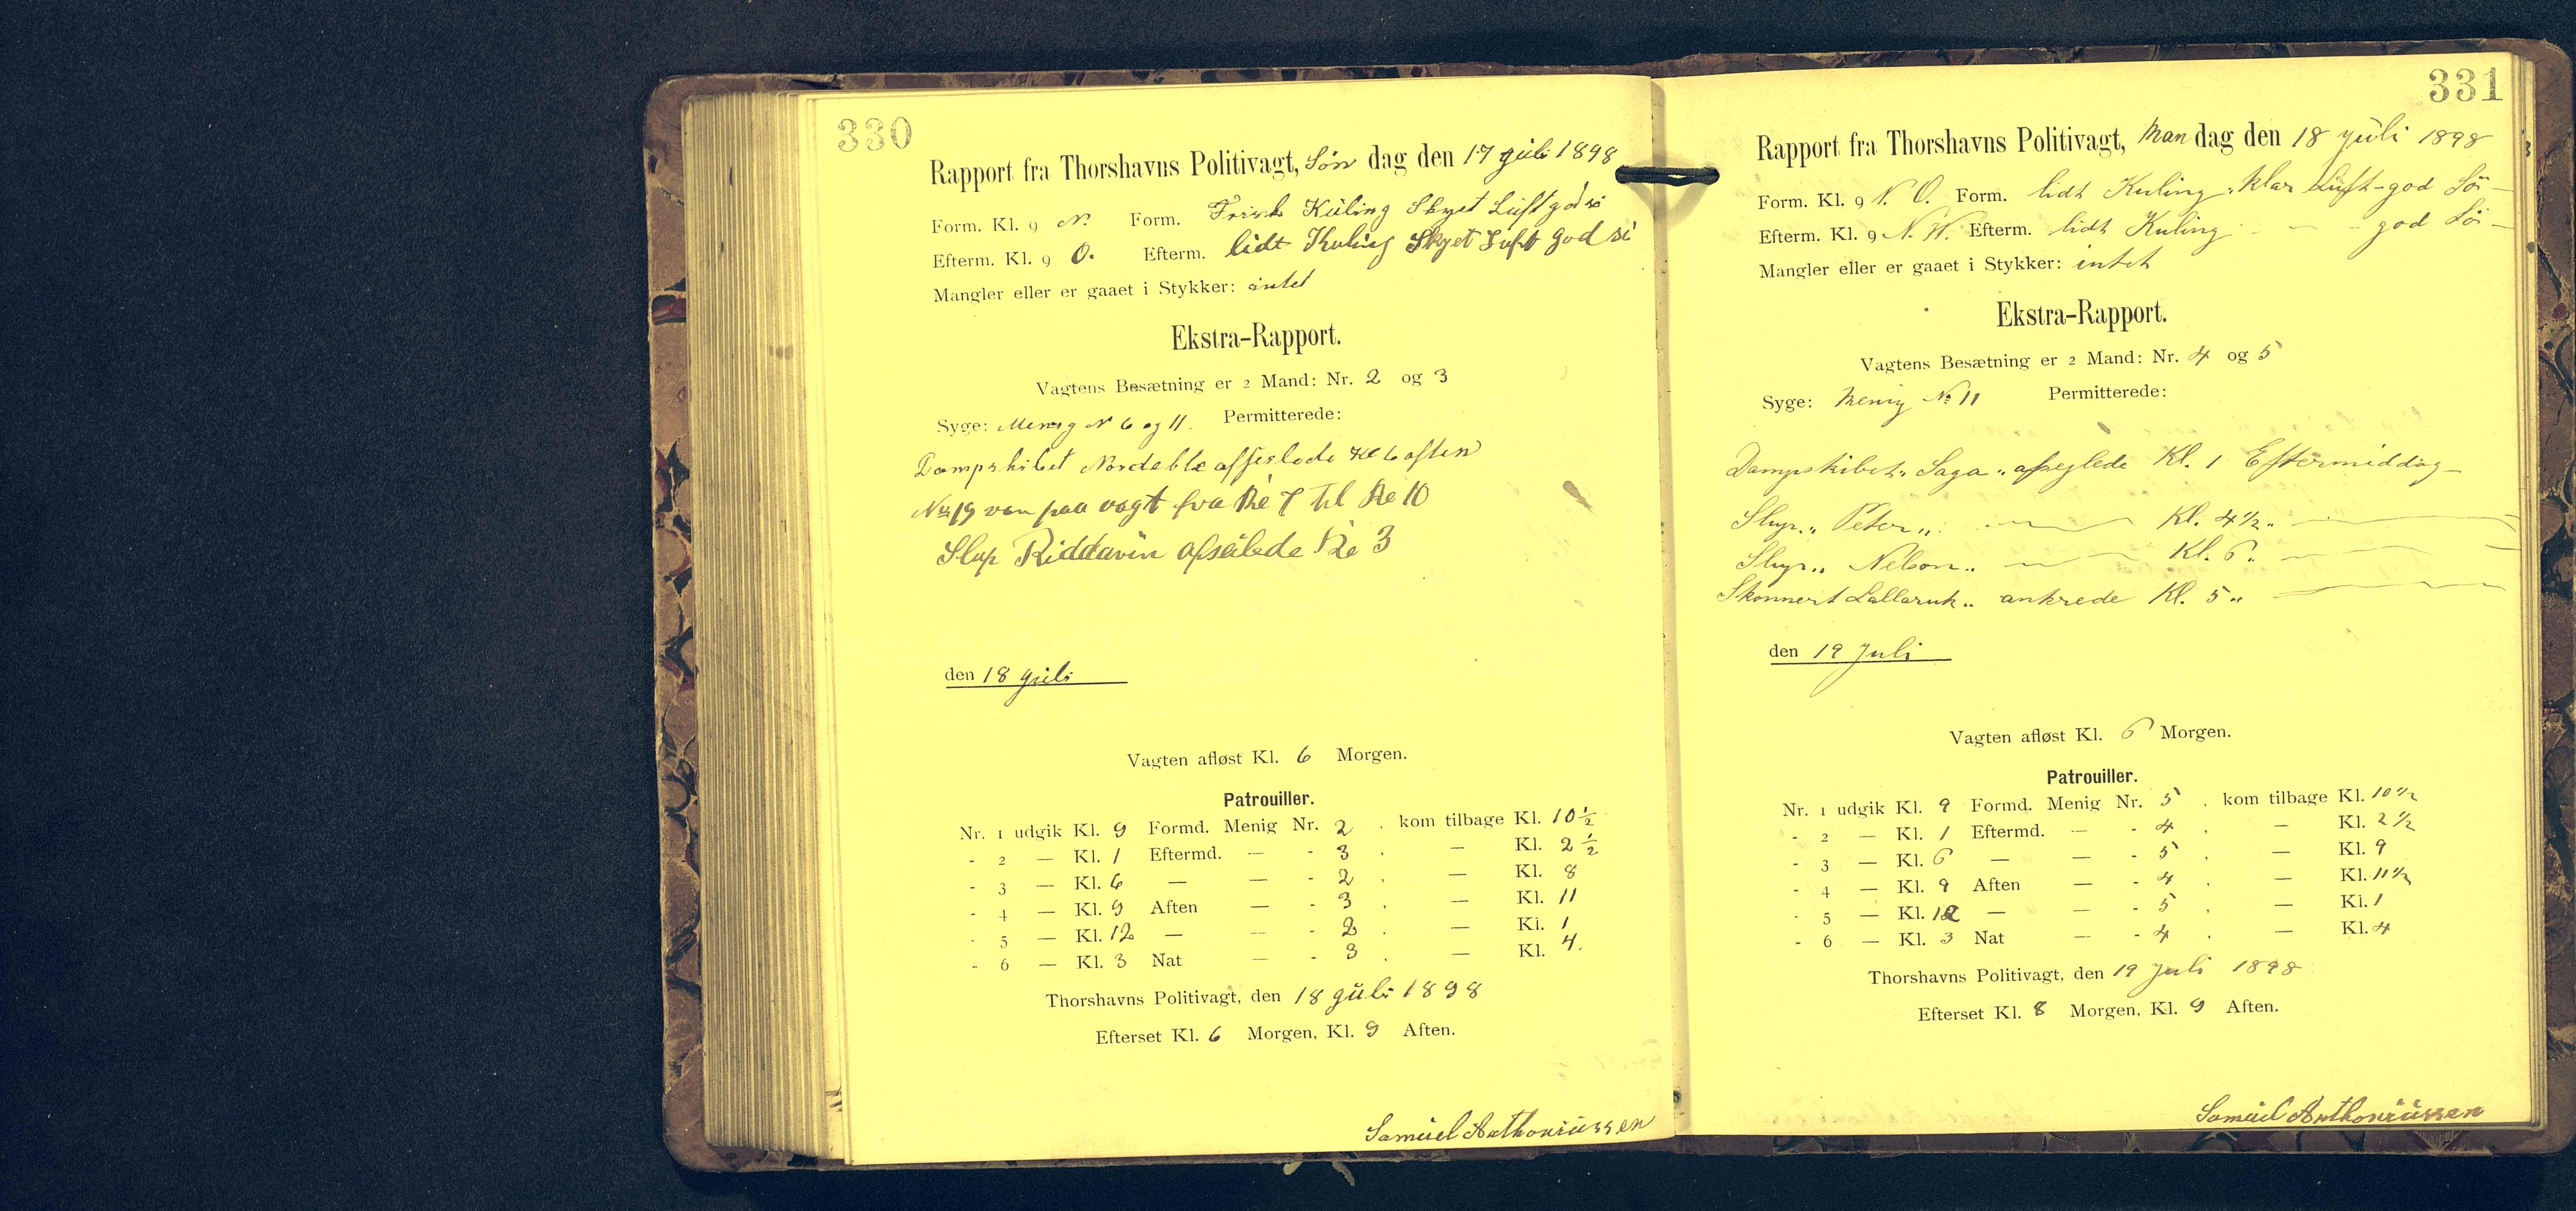 330
Rapport fra Thorshavns Politivagt, Søn dag den 17 juli 1898
Form. Kl. 9 N. Form. Frisk Kuling Skyet Luft god sö
Efterm. Kl. 9 O. Efterm. lidt Kuling Skyet Luft god sö
Mangler eller er gaaet i Stykker: intet
Ekstra-Rapport.
Vagtens Besætning er 2 Mand: Nr. 2 og 3
Syge: Menig N 6 og 11. Permitterede:
Dampskibet afseilede Kl 6 aften
No 19 var paa vagt fra Kl 7 til Kl 10
Slup Riddarin afseilede Kl 3
den 18 juli
Vagten afløst Kl. 6 Morgen.
Patrouiller.
Nr. 1 udgik Kl. 9 Formd. Menig Nr. 2 . kom tilbage Kl. 10 1/2
- 2 — Kl. 1 Eftermd. — - 3 . — Kl. 2 1/2
- 3 — Kl. 6 — — - 2 . — Kl. 8
- 4 — Kl. 9 Aften — - 3 . — Kl. 11
- 5 — Kl. 12 — — - 2 . — Kl. 1
- 6 — Kl. 3 Nat — - 3 . — Kl. 4.
Thorshavns Politivagt, den 18 juli 1898
Efterset Kl. 6 Morgen, Kl. 9 Aften.
Samuel Anthoniussen
331
Rapport fra Thorshavns Politivagt, Man dag den 18 juli 1898
Form. Kl. 9 N. O. Form. lidt Kuling klar Luft - god Sö -
Efterm. Kl. 9 N. W. Efterm. lidt Kuling - - - god Sö -
Mangler eller er gaaet i Stykker: intet
Ekstra-Rapport.
Vagtens Besætning er 2 Mand: Nr. 4 og 5
Syge: Menig No 11 Permitterede:
Dampskibet „Saga„ afsejlede Kl. 1 Eftermiddag -
Slup. „Peter„ — — Kl. 4 1/2 „ —
Slup „Nelson„ — — Kl. 6 „ — —
Skonnert Lallaruk„ ankrede Kl. 5 „ —
den 19 Juli
Vagten afløst Kl. 6 Morgen.
Patrouiller.
Nr. 1 udgik Kl. 9 Formd. Menig Nr. 5 . kom tilbage Kl. 10 1/2
- 2 — Kl. 1 Eftermd. — - 4 . — Kl. 2 1/2
- 3 — Kl. 6 — — - 5 . — Kl. 9
- 4 — Kl. 9 Aften — - 4 . — Kl. 11 1/2
- 5 — Kl. 12 — — - 5 . — Kl. 1
- 6 — Kl. 3 Nat — - 4 . — Kl. 4
Thorshavns Politivagt, den 19 Juli 1898
Efterset Kl. 8 Morgen, Kl. 9 Aften.
Samuel Anthoniussen